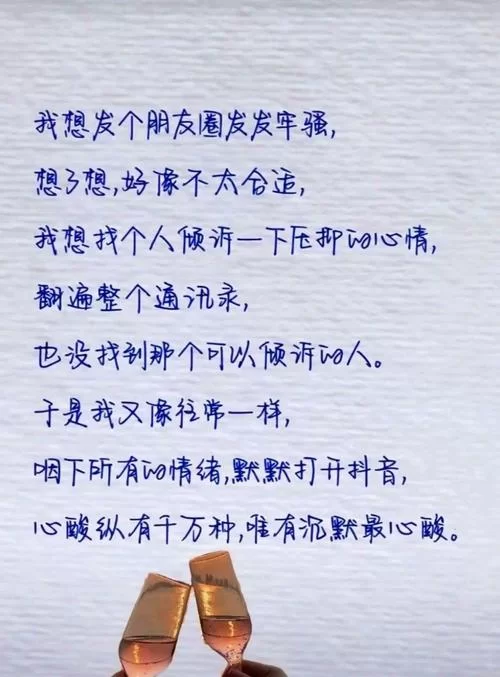 我想发个朋友圈发发牢骚,
想了想,好像不太合适,
我想找个人倾诉一下压抑的心情,
翻遍整个通讯录,
也没找到那个可以倾诉的人。
于是我又像往常一样,
咽下所有的情绪,默默打开抖音,
心酸纵有千万种,唯有沉默最心酸。